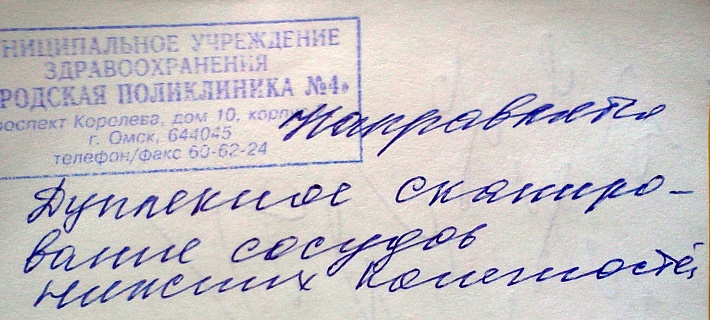 НИЦИПАЛЬНОЕ УЧРЕЖДЕНИЕ
ЗДРАВООХРАНЕНИЯ
РОДСКАЯ ПОЛИКЛИНИКА №4»
роспект Королева, дом 10, корпу
г. Омск, 644045
телефон/факс 60-62-24
Направляется
Дуплексное сканиро-
вание сосудов
нижних конечностей